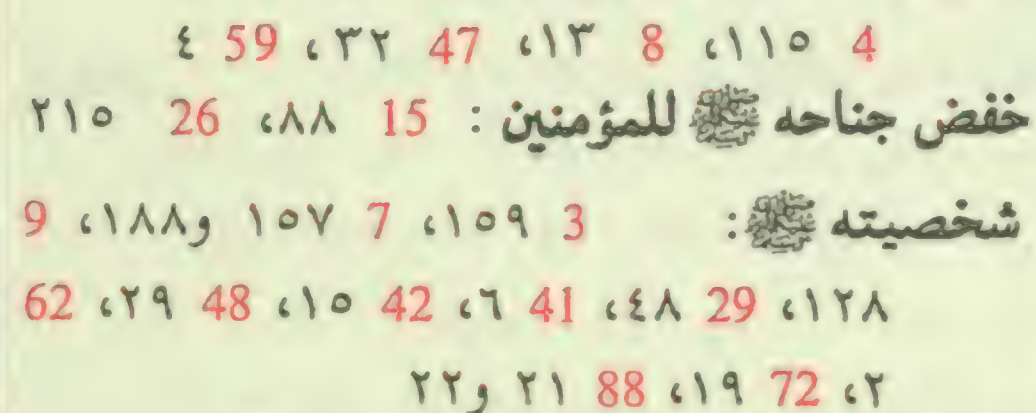 4 ١١٥، 8 ١٣، 47 ٣٢، 59 ٤
خفض جناحه ﷺ للمؤمنين: 15 ٨٨، 26 ٢١٥
شخصيته ﷺ: 3 ١٥٩، 7 ١٥٧ و١٨٨، 9
١٢٨، 29 ٤٨، 41 ٦، 42 ١٥، 48 ٢٩، 62
٢، 72 ١٩، 88 ٢١ و٢٢